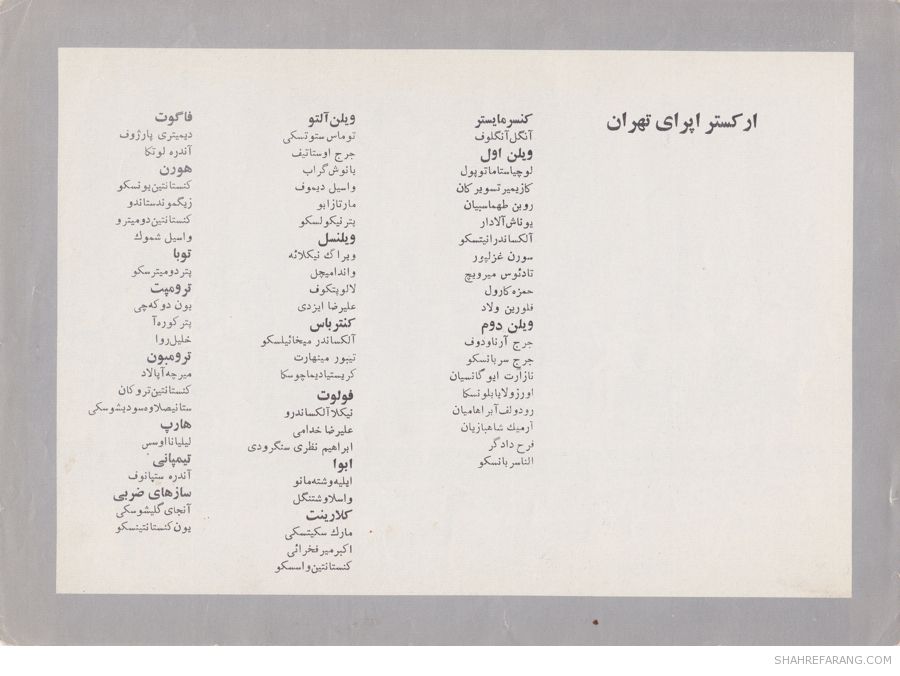 ارکستر اپرای تهران
کنسرمایستر
آنگل‌آنگلوف
ویلن اول
لوچیاستاماتوپول
کازیمیر تسویرکان
روبن طهماسبیان
یوناش‌آلادار
آلکساندرانیتسکو
سورن غزلپور
تادئوس میرویچ
حمزه‌کارول
فلورین ولاد
ویلن دوم
جرج آرناودوف
جرج سربانسکو
نازآرت ایوگانسیان
اورزولایابلونسکا
رودولف‌آبراهامیان
آرمیك شاهبازیان
فرح دادگر
الناسربانسکو
ویلن‌آلتو
توماس ستوتسکی
جرج اوستاتیف
یانوش‌گراب
واسیل دیموف
مارتازابو
پترنیکولسکو
ویلنسل
ویراگ نیکلائه
واندامیچل
لالوپتکوف
علیرضا ایزدی
کنترباس
آلکساندر میخائیلسکو
تیبور مینهارت
کریستیادیماچوسکا
فولوت
نیکلاآلکساندرو
علیرضا خدامی
ابراهیم نظری سنگرودی
ابوا
ایلیه‌وشته‌مانو
واسلاوشتنگل
کلارینت
مارك سکیتسکی
اکبرمیرفخرائی
کنستانتین‌واسسکو
فاگوت
دیمیتری پارژوف
آندره لوتکا
هورن
کنستانتین‌یونسکو
زیگموندستاندو
کنستانتین‌دومیترو
واسیل شموك
توبا
پتردومیترسکو
ترومپت
یون دوکه‌چی
پترکوره‌آ
خلیل‌روا
ترومبون
میرچه‌آپالاد
کنستانتین‌تروکان
ستانیصلاوه‌سودیشوسکی
هارپ
لیلیانااوسس
تیمپانی
آندره ستپانوف
سازهای ضربی
آنجای‌گلیشوسکی
یون‌کنستانتینسکو
SHAHREFARANG.COM